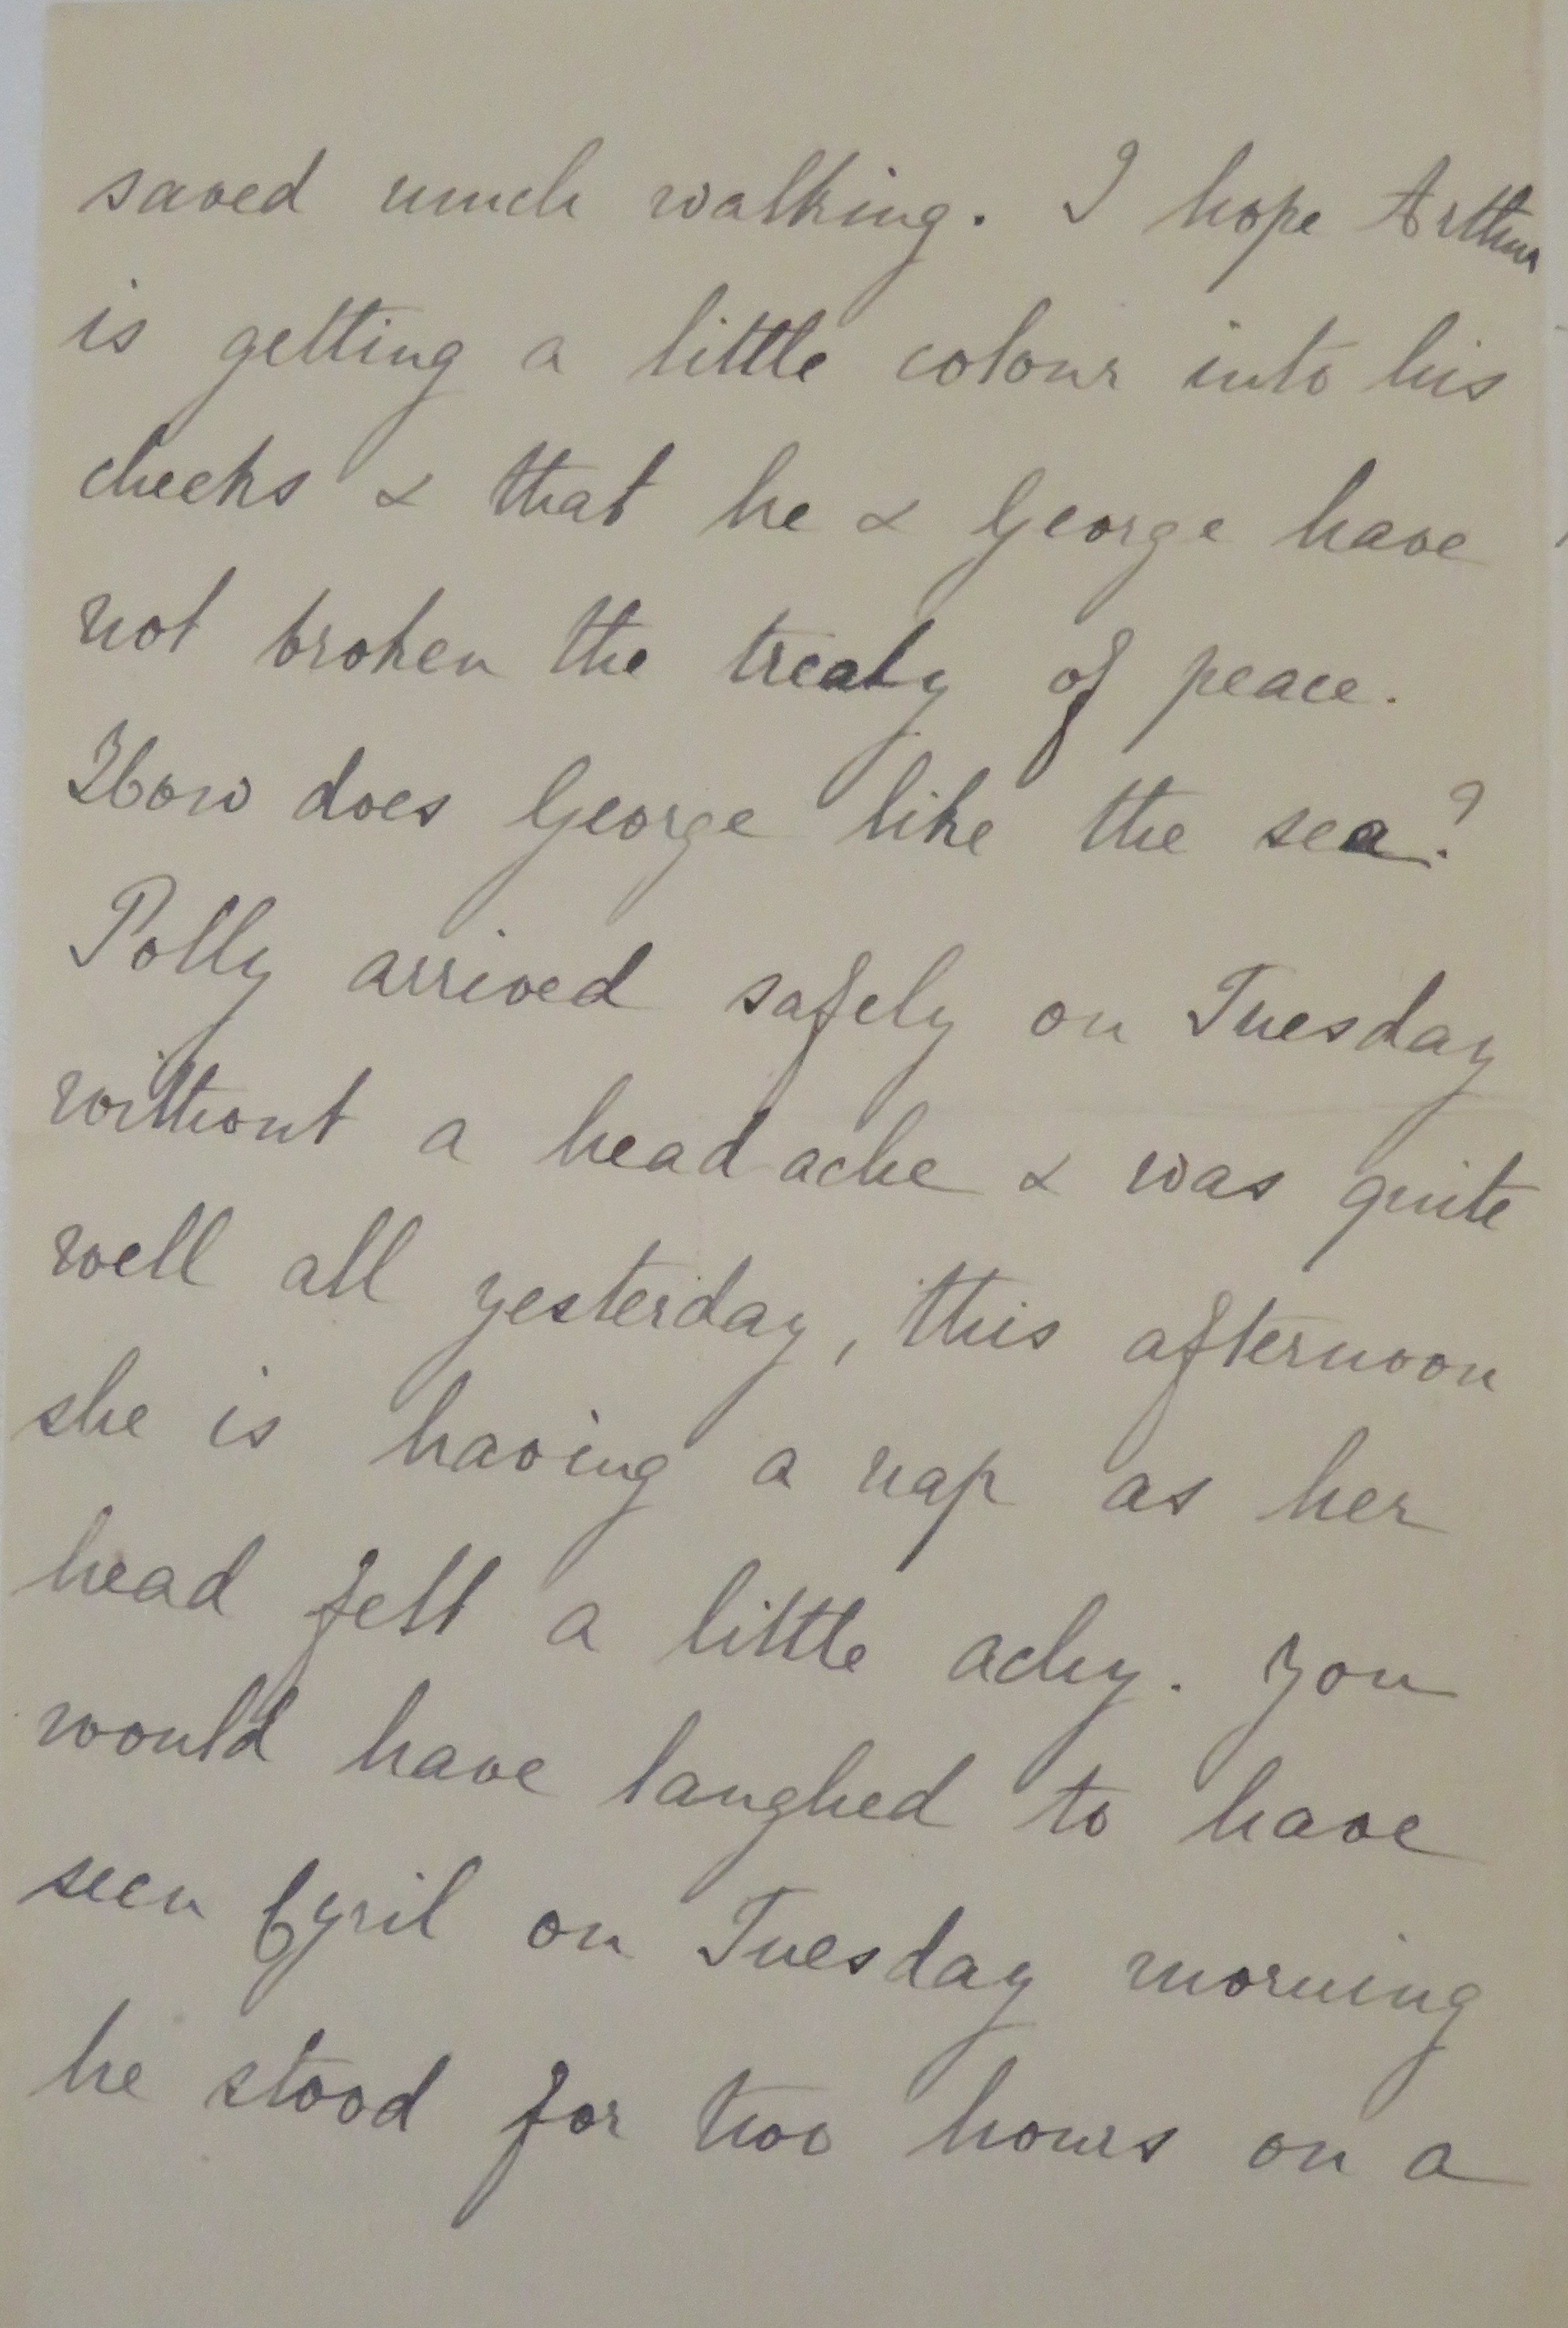 saved much walking. I hope Arthur
is getting a little colour into his
cheeks & that he & George have
not broken the treaty of peace.
How does George like the sea?
Polly arrived safely on Tuesday
without a head ache & was quite
well all yesterday, this afternoon
she is having a nap as her
head felt a little achy. You
would have laughed to have
seen Cyril on Tuesday morning
he stood for two hours on a